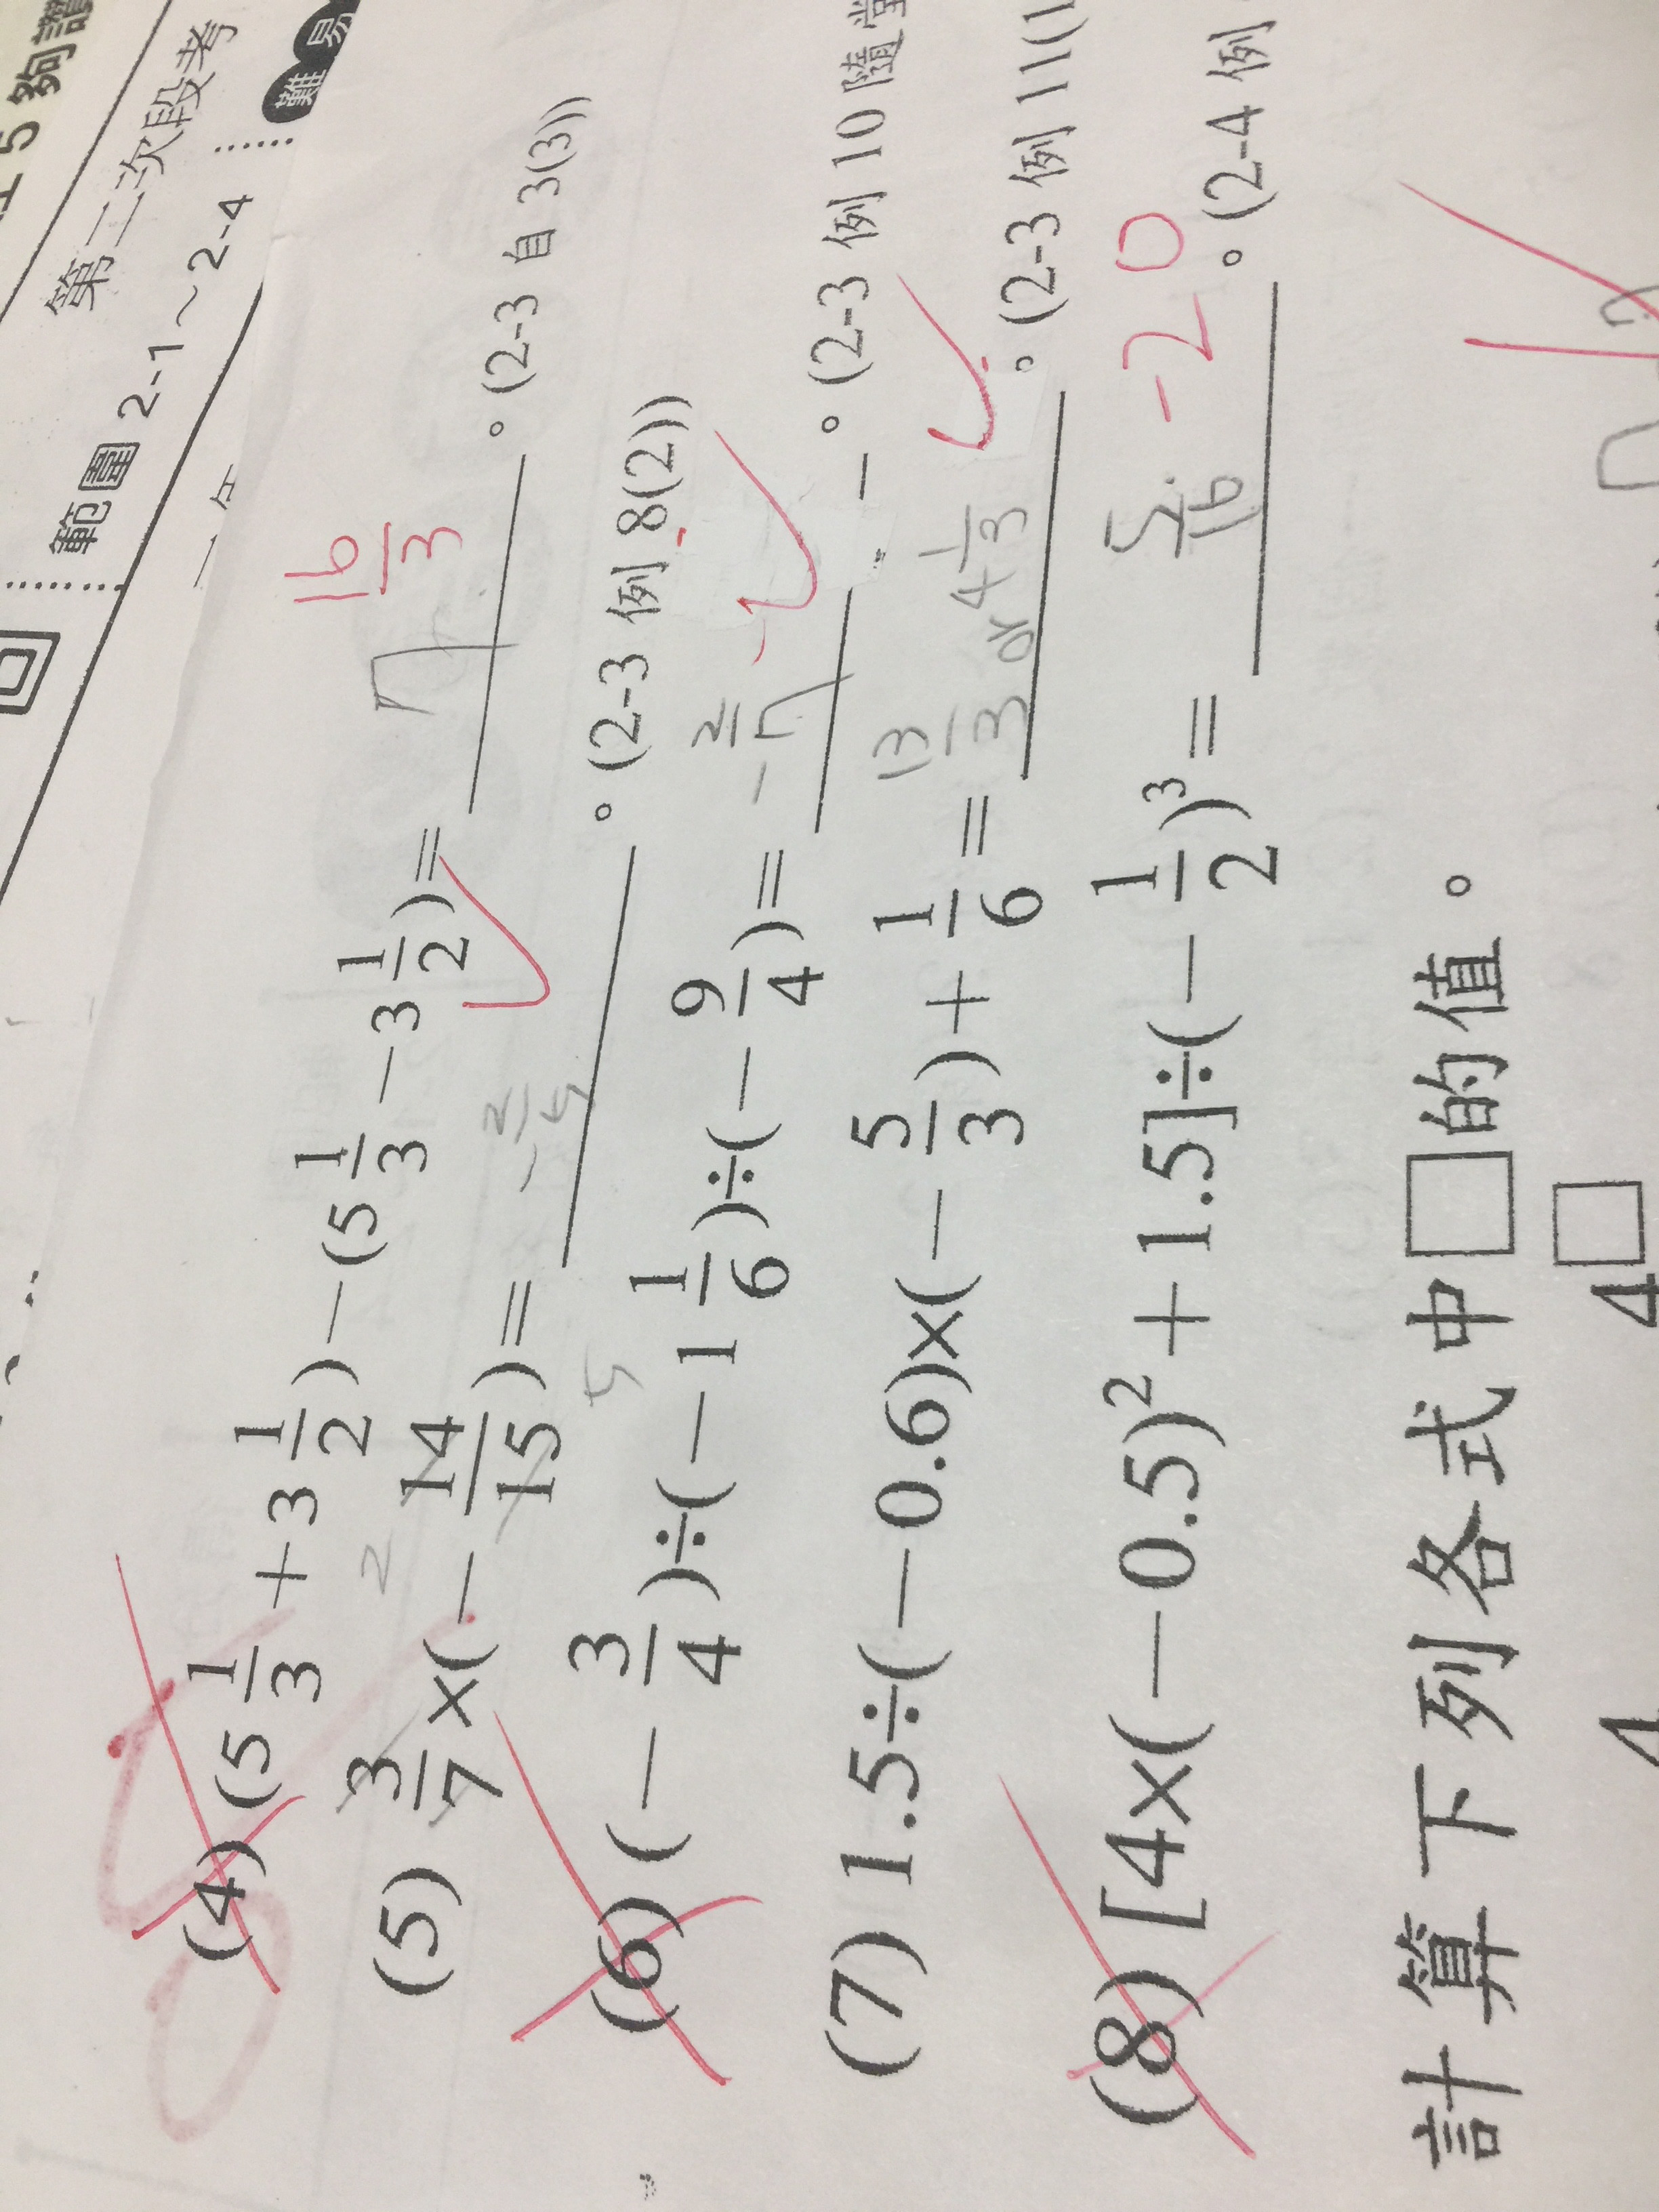 5 夠
第二次段考
範圍 2-1～2-4
難 易
16/3
(4) (5 1/3 + 3 1/2) − (5 1/3 − 3 1/2) = 7 。(2-3 自 3(3))
(5) 3/7 × (− 14/15) = − 2/5 。(2-3 例 8(2))
2
5
(6) (− 3/4) ÷ (− 1 1/6) ÷ (− 9/4) = − 2/7 。(2-3 例 10 隨堂
(7) 1.5 ÷ (−0.6) × (− 5/3) + 1/6 = 13/3 or 4 1/3 。(2-3 例 11(1
(8) [4×(−0.5)² + 1.5] ÷ (− 1/2)³ = 5/16 。(2-4 例
-20
計算下列各式中□的值。
4 □
4